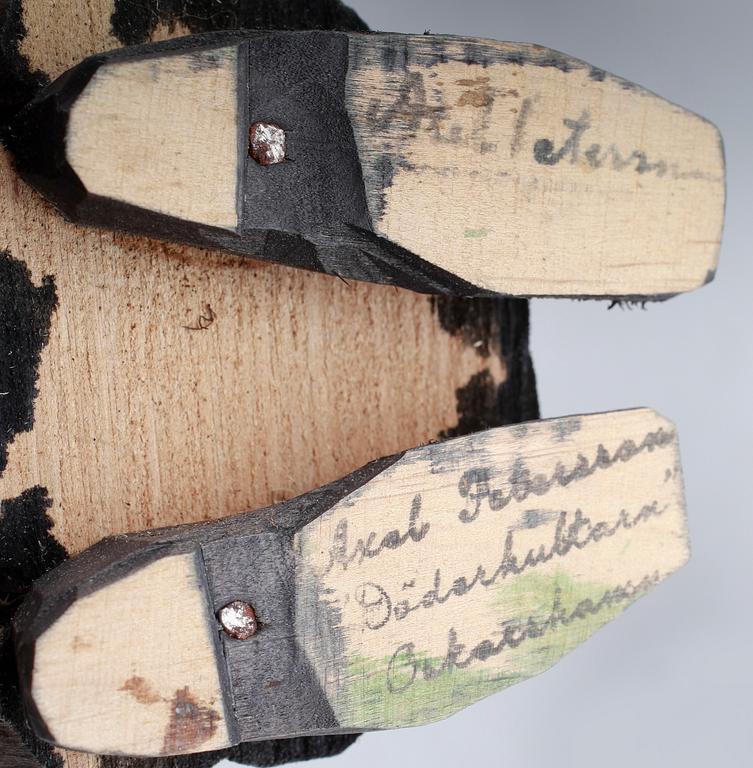 Axel Petersson
Axel Petersson
"Döderhultarn"
Oskarshamn